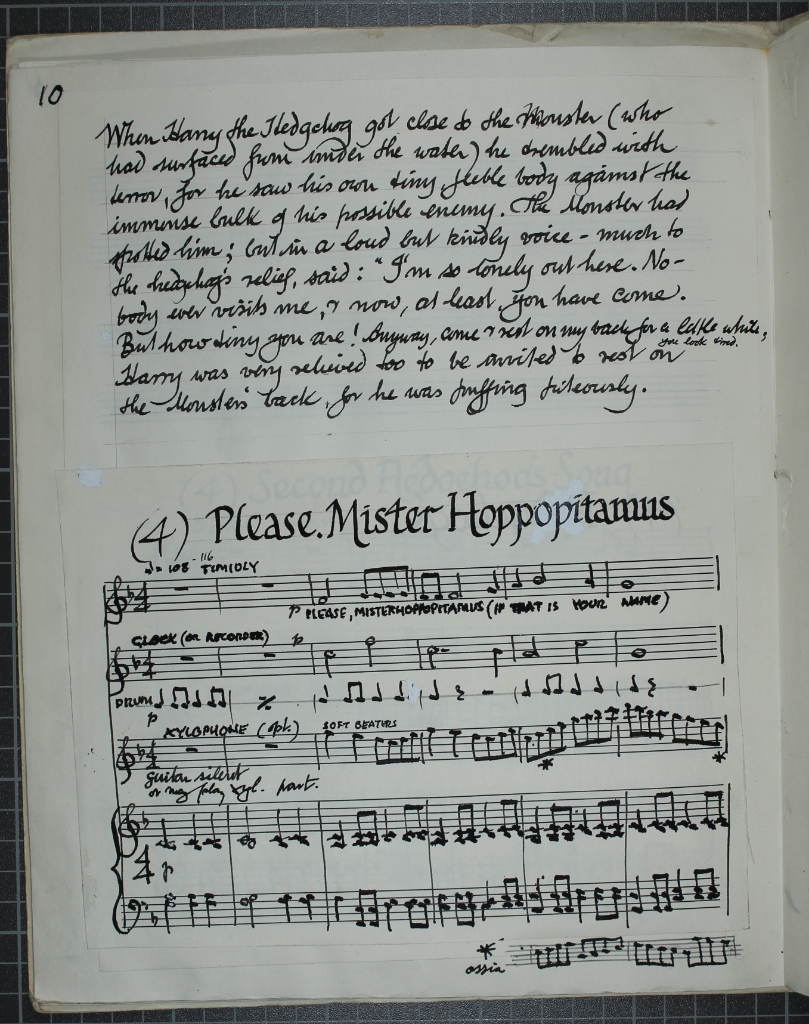 10
When Harry the Hedgehog got close to the Monster (who
had surfaced from under the water) he trembled with
terror, for he saw his own tiny, feeble body against the
immense bulk of his possible enemy. The Monster had
spotted him; but in a loud but kindly voice - much to
the hedgehog's relief, said: "I'm so lonely out here. No-
body ever visits me, & now, at least, you have come.
But how tiny you are! Anyway, come & rest on my back for a little while,
you look tired.
Harry was very relieved too to be invited to rest on
the Monster's back, for he was puffing piteously.
(4) Second Hedgehog's Song
(4) Please. Mister Hoppopitamus
♩= 108-116 TIMIDLY
p PLEASE, MISTER HOPPOPITAMUS (IF THAT IS YOUR NAME)
GLOCK (OR RECORDER) p
DRUM
p
XYLOPHONE (opt.) SOFT BEATERS
Guitar silent
or may play xyl. part.
4
4 p
*
ossia